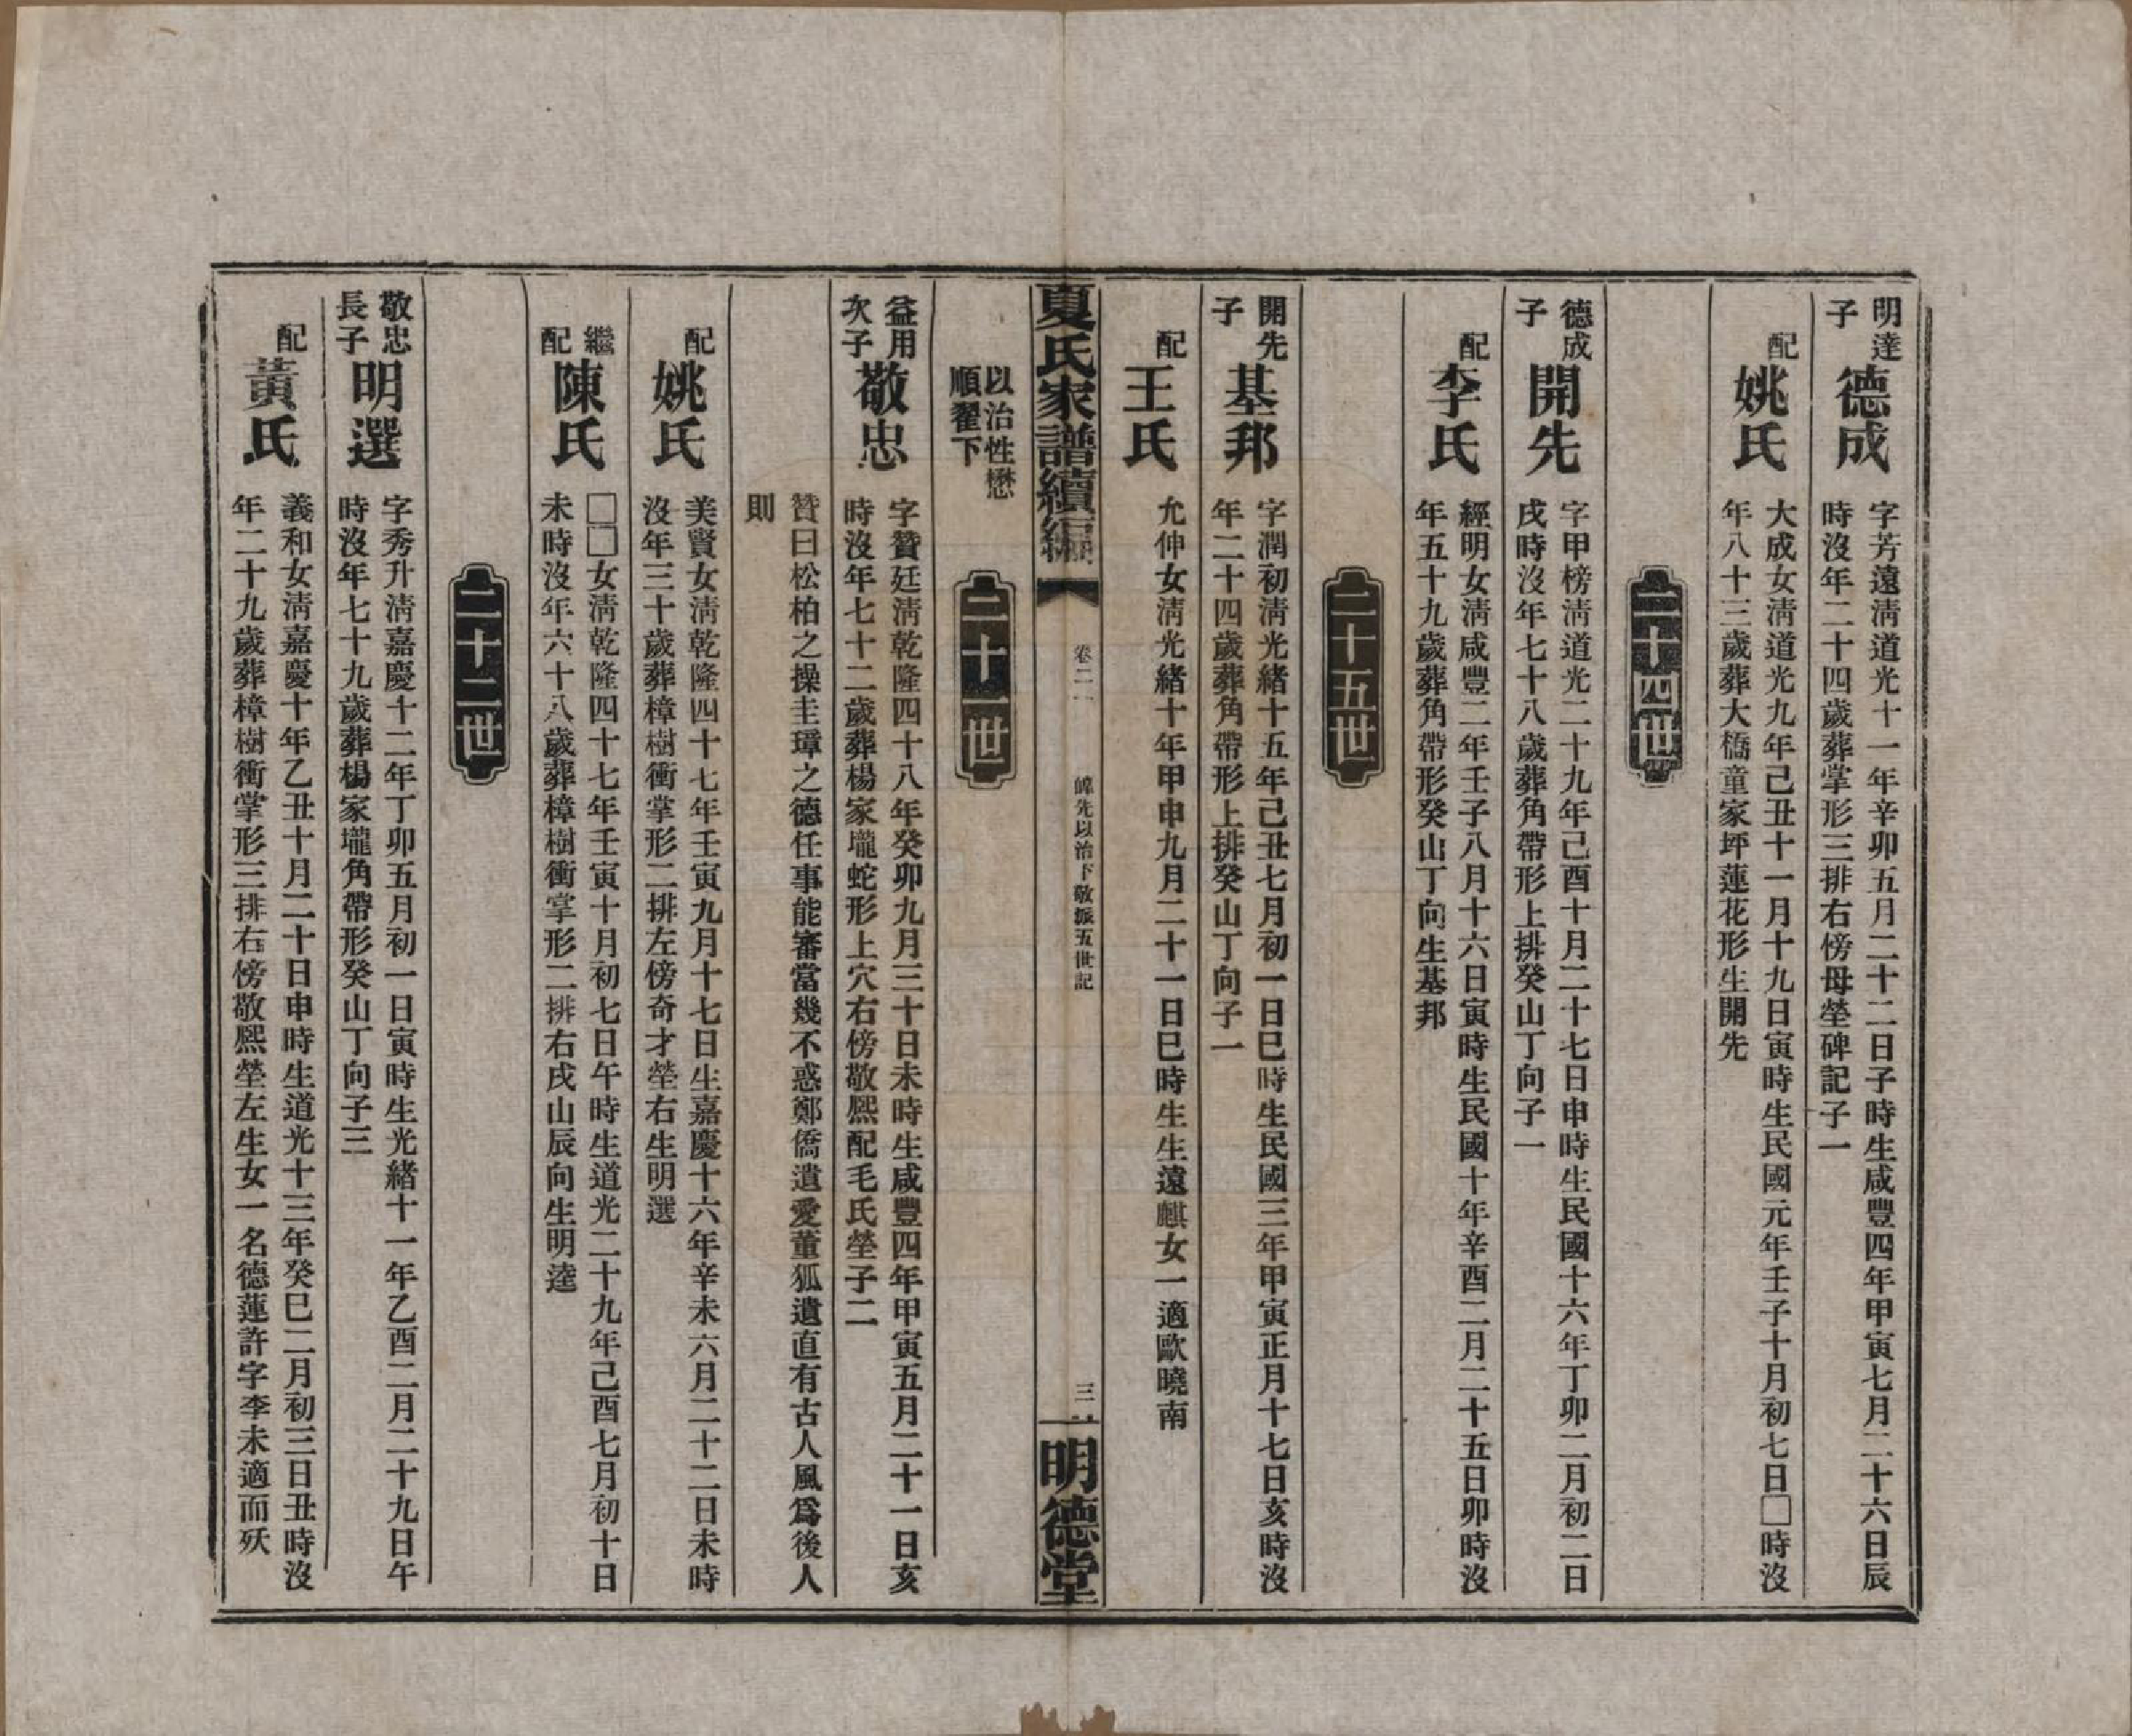 明達
子
德成
字芳遠淸道光十一年辛卯五月二十二日子時生咸豐四年甲寅七月二十六日辰
時沒年二十四歲葬掌形三排右傍母塋碑記子一
配
姚氏
大成女淸道光九年己丑十一月十九日寅時生民國元年壬子十月初七日□時沒
年八十三歲葬大橋童家坪蓮花形生開先
二十四世
德成
子
開先
字甲榜淸道光二十九年己酉十月二十七日申時生民國十六年丁卯二月初二日
戌時沒年七十八歲葬角帶形上排癸山丁向子一
配
李氏
經明女淸咸豐二年壬子八月十六日寅時生民國十年辛酉二月二十五日卯時沒
年五十九歲葬角帶形癸山丁向生基邦
二十五世
開先
子
基邦
字潤初淸光緒十五年己丑七月初一日巳時生民國三年甲寅正月十七日亥時沒
年二十四歲葬角帶形上排癸山丁向子一
配
王氏
允仲女淸光緒十年甲申九月二十一日巳時生生遠麒女一適歐曉南
夏氏家譜續編
卷二
先以治下敬振五世記
三
明德堂
以治性懋
順翟下
二十一世
益用
次子
敬忠
字贊廷淸乾隆四十八年癸卯九月三十日未時生咸豐四年甲寅五月二十一日亥
時沒年七十二歲葬楊家壠蛇形上穴右傍敬熙配毛氏塋子二
贊曰松柏之操圭璋之德任事能審當幾不惑鄭僑遺愛董狐遺直有古人風爲後人
則
配
姚氏
美賢女淸乾隆四十七年壬寅九月十七日生嘉慶十六年辛未六月二十二日未時
沒年三十歲葬樟樹衝掌形二排左傍奇才塋右生明選
繼
配
陳氏
□□女淸乾隆四十七年壬寅十月初七日午時生道光二十九年己酉七月初十日
未時沒年六十八歲葬樟樹衝掌形二排右戌山辰向生明逵
二十二世
敬忠
長子
明選
字秀升淸嘉慶十二年丁卯五月初一日寅時生光緒十一年乙酉二月二十九日午
時沒年七十九歲葬楊家壠角帶形癸山丁向子三
配
黃氏
義和女淸嘉慶十年乙丑十月二十日申時生道光十三年癸巳二月初三日丑時沒
年二十九歲葬樟樹衝掌形三排右傍敬熙塋左生女一名德蓮許字李未適而殀